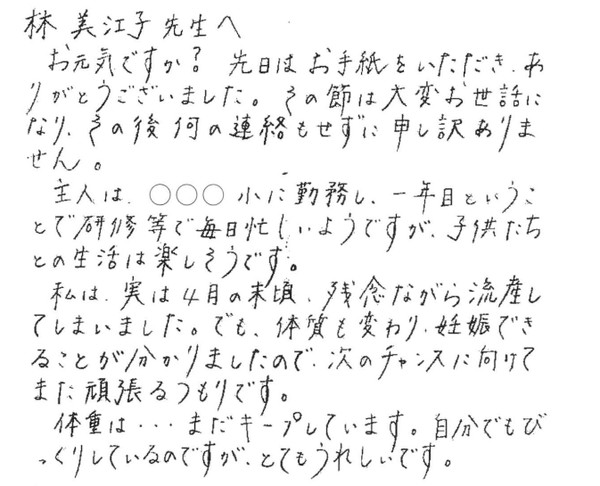 林 美江子 先生へ
お元気ですか? 先日はお手紙をいただき、あ
りがとうございました。その節は大変お世話に
なり、その後何の連絡もせずに申し訳ありま
せん。
主人は、○○○小に勤務し、一年目というこ
とで研修等で毎日忙しいようですが、子供たち
との生活は楽しそうです。
私は、実は4月の末頃、残念ながら流産し
てしまいました。でも、体質も変わり、妊娠でき
ることが分かりましたので、次のチャンスに向けて
また頑張るつもりです。
体重は・・・まだキープしています。自分でもび
っくりしているのですが、とてもうれしいです。